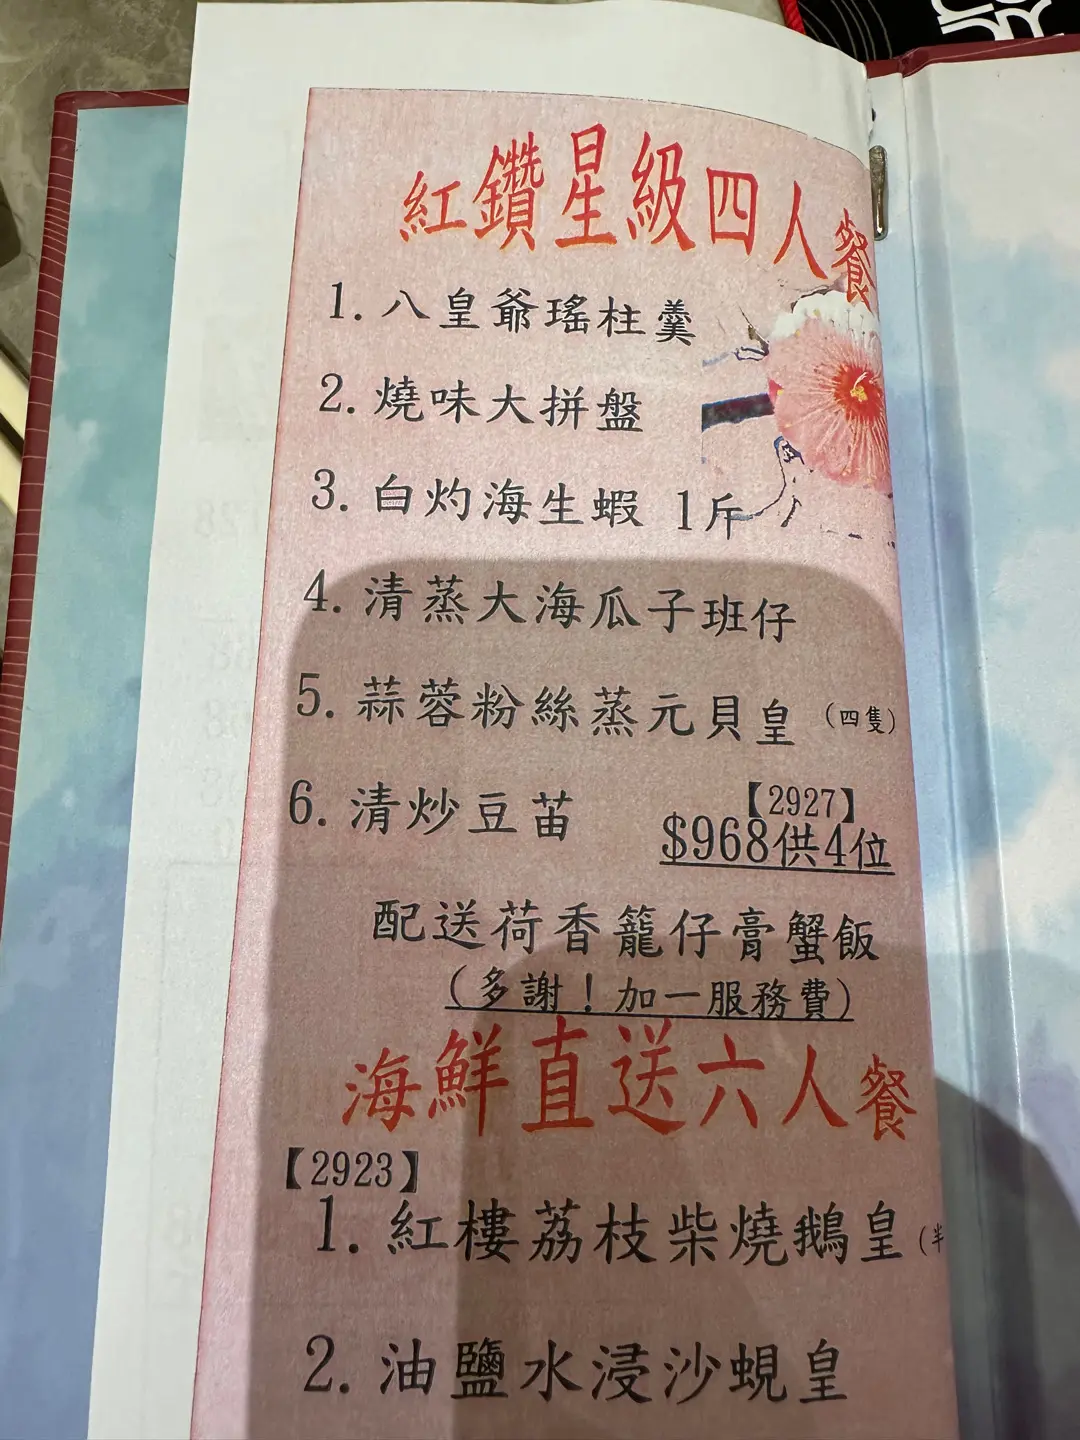 紅鑽星級四人餐
1. 八皇爺瑤柱羹
2. 燒味大拼盤
3. 白灼海生蝦 1斤
4. 清蒸大海瓜子班仔
5. 蒜蓉粉絲蒸元貝皇 (四隻)
6. 清炒豆苗
【2927】
$968供4位
配送荷香籠仔膏蟹飯
(多謝！加一服務費)
海鮮直送六人餐
【2923】
1. 紅樓荔枝柴燒鵝皇 (半
2. 油鹽水浸沙蜆皇